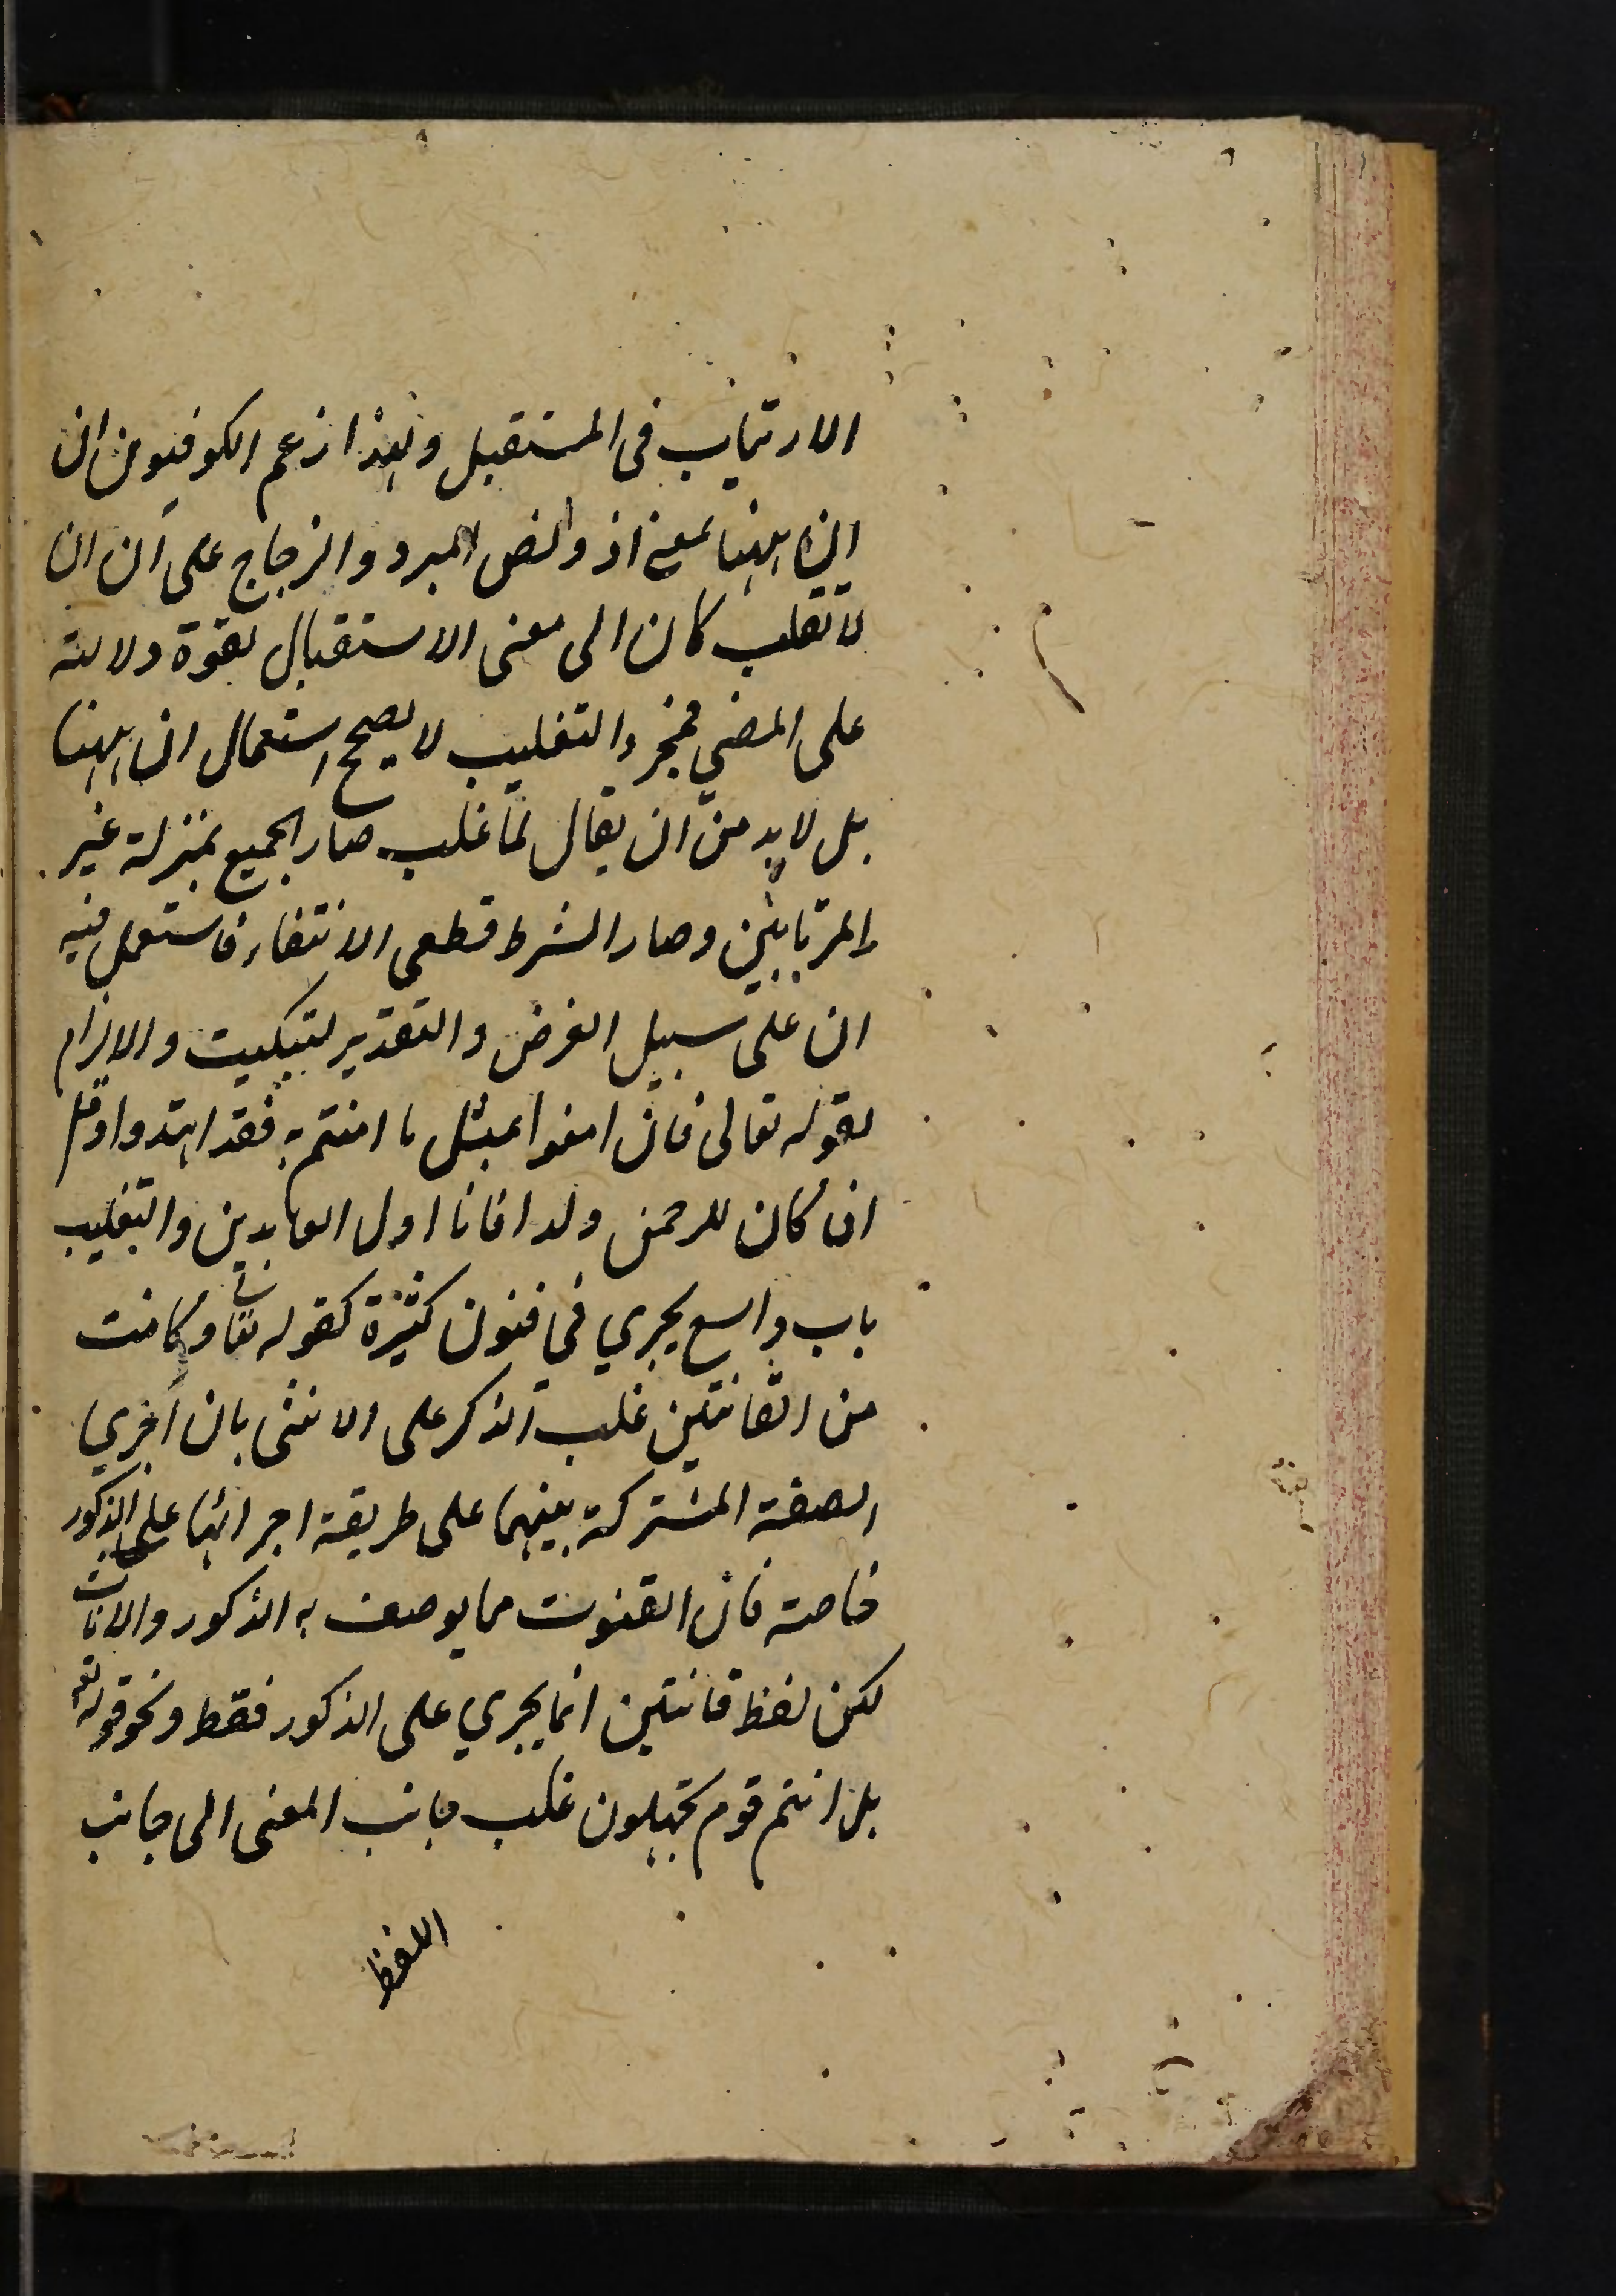 الارتياب فى المستقبل ولهذا زعم الكوفيون ان
ان ههنا بمعنى اذ ونص المبرد والزجاج على ان ان
لا تقلب كان الى معنى الاستقبال لقوة دلالته
على المضي فمجرد التغليب لا يصحح استعمال ان ههنا
بل لا بد من ان يقال لما غلب صار الجميع بمنزلة غير
المرتابين وصار الشرط قطعى الانتفاء فاستعمل فيه
ان على سبيل الفرض والتقدير لتبكيت والالزام
لقوله تعالى فان امنوا بمثل ما امنتم به فقد اهتدوا وقل
ان كان للرحمن ولد افانا اول العابدين والتغليب
باب واسع يجري في فنون كثيرة كقوله تعا وكانت
من القانتين غلب الذكر على الانثى بان اجري
الصفة المشتركة بينهما على طريقة اجرائها على الذكور
خاصة فان القنوت مما يوصف به الذكور والاناث
لكن لفظ قانتين انما يجري على الذكور فقط ونحو قوله تع
بل انتم قوم تجهلون غلب جانب المعنى الى جانب
اللفظ